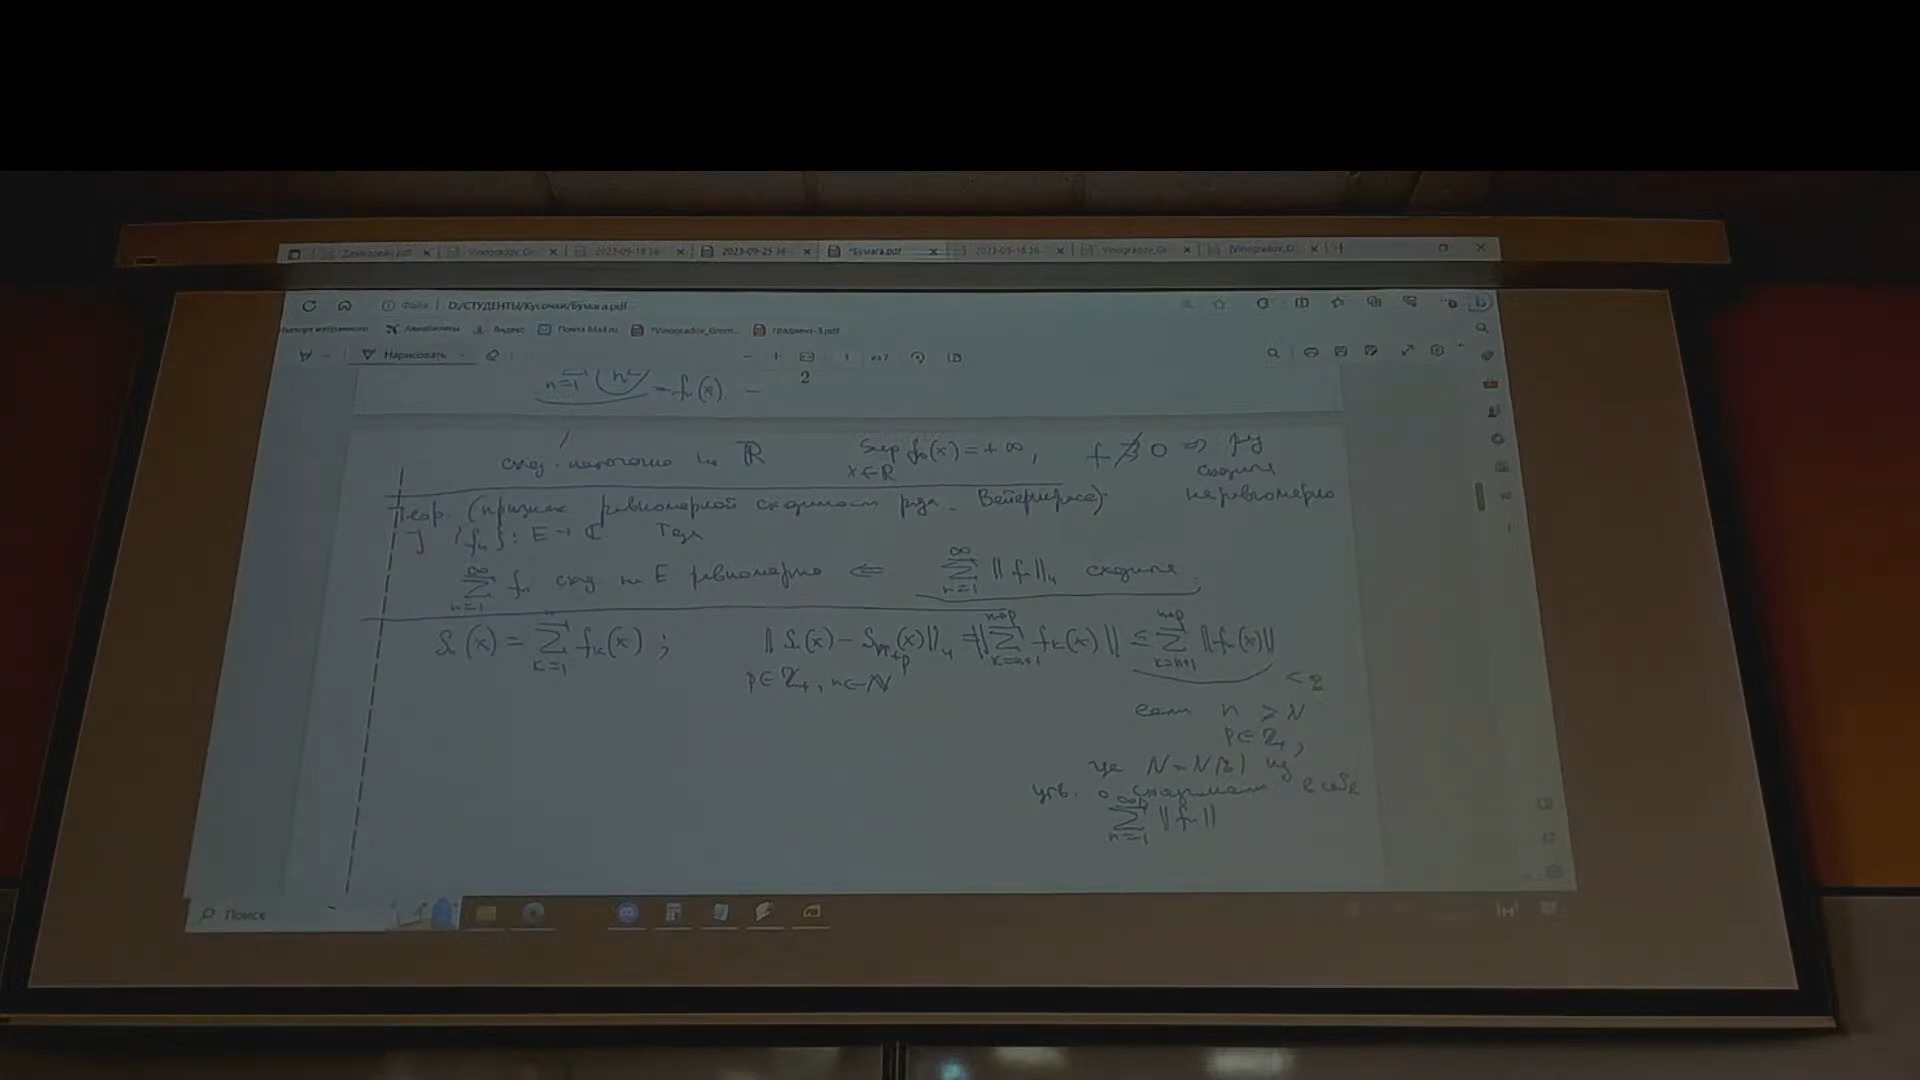 2023-09-18 16 2023-09-25 16 *Бумага.pdf 2023-09-18 16 Vinogradov_Gr Vinogradov_D
Файл D:/СТУДЕНТЫ/Кусочки/Бумага.pdf
Импорт избранного Авиабилеты Яндекс Почта Mail.ru Vinogradov_Geom... градиент-3.pdf
Нарисовать 1 из 7
2
n=1 (n² – fₙ(x)
сход. поточечно на ℝ sup fₙ(x) = +∞, f ⇉̸ 0 ⇒ ряд
x∈ℝ сходится
неравномерно
Теор. (признак равномерной сходимости ряда. Вейерштрасс)
] {fₙ}: E → ℂ Тогда
∑_{n=1}^{∞} fₙ сход на E равномерно ⇐ ∑_{n=1}^{∞} ||fₙ||ᵤ сходится.
Sₙ(x) = ∑_{k=1}^{n} fₖ(x); ||Sₙ(x) – Sₙ₊ₚ(x)||ᵤ = ||∑_{k=n+1}^{n+p} fₖ(x)|| ≤ ∑_{k=n+1}^{n+p} ||fₙ(x)||
p∈ℤ₊, n∈ℕ < ε
если n ≥ N
p∈ℤ₊,
где N = N(ε) из
утв. о сходимости в себе
∑_{n=1}^{∞} ||fₙ||
Поиск